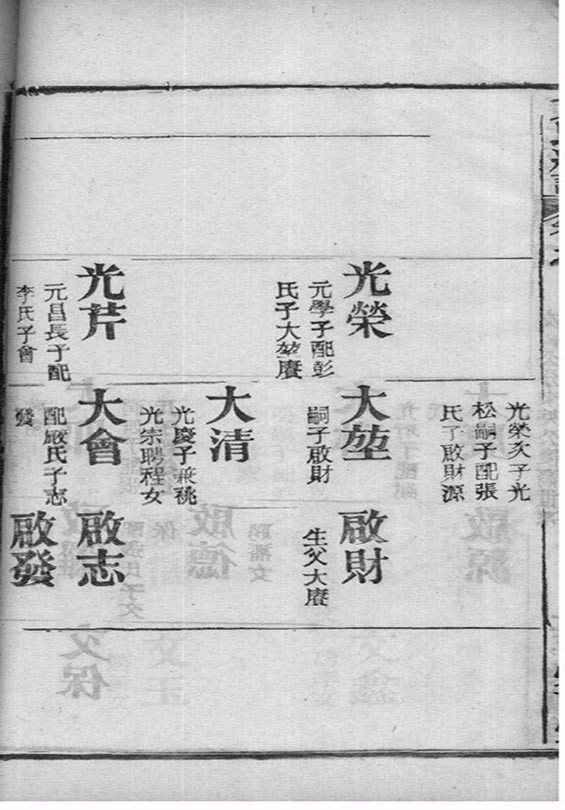 光榮
元學子配彭
氏子大堃賡
光芹
元昌長子配
李氏子會
光榮次子光
松嗣子配張
氏子啟財源
大堃
嗣子啟財
大清
光慶子兼祧
光宗聘程女
大會
配嚴氏子志
發
啟財
生父大賡
啟志
啟發